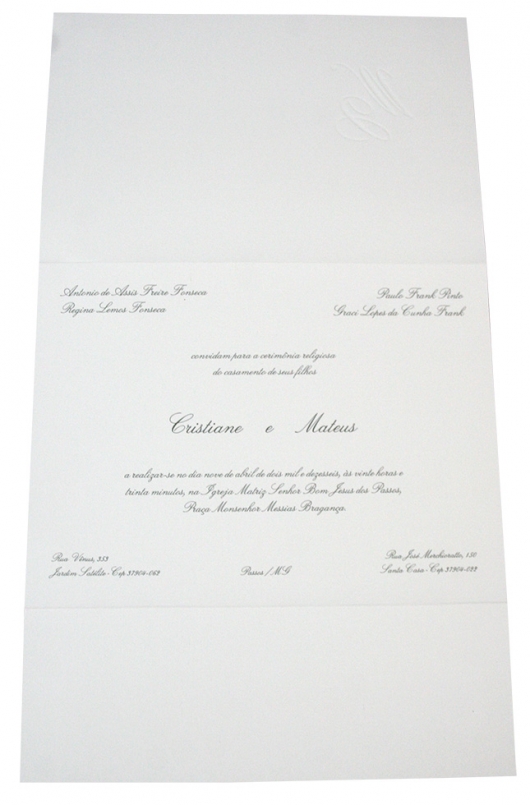 CM
Antonio de Assis Freire Fonseca
Regina Lemos Fonseca
Paulo Frank Pinto
Graci Lopes da Cunha Frank
convidam para a cerimônia religiosa
do casamento de seus filhos
Cristiane e Mateus
a realizar-se no dia nove de abril de dois mil e dezesseis, às vinte horas e
trinta minutos, na Igreja Matriz Senhor Bom Jesus dos Passos,
Praça Monsenhor Messias Bragança.
Rua Vênus, 353
Jardim Satélite - Cep 37904-062
Passos / MG
Rua José Merchioratto, 150
Santa Casa - Cep 37904-022